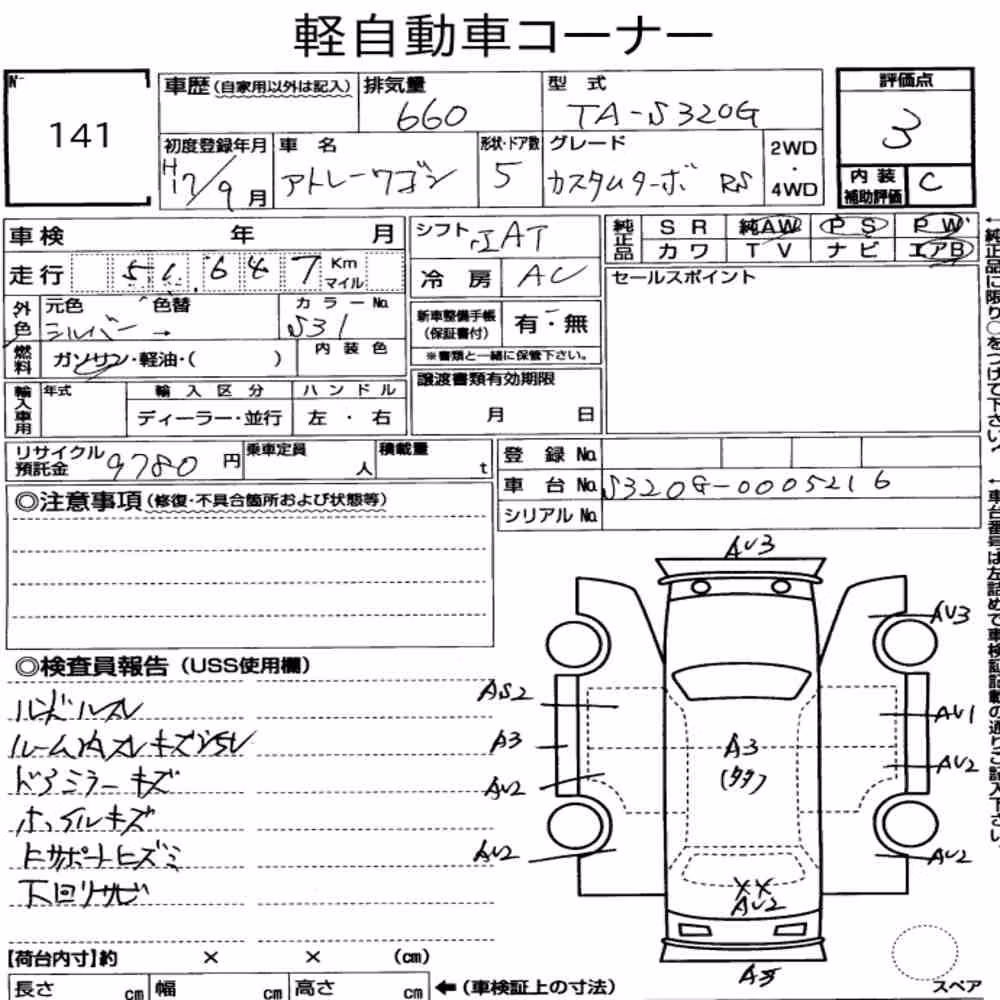 軽自動車コーナー
No 141
車歴(自家用以外は記入) 排気量 660 型式 TA-S320G 評価点 3
初度登録年月 H17/9月 車名 アトレーワゴン 形状・ドア数 5 グレード カスタムターボ RS 2WD・4WD 内装補助評価 C
車検 年 月 シフト IAT 純正品 SR 純AW PS PW
カワ TV ナビ エアB
走行 51,647 Km マイル 冷房 AC セールスポイント
外色 元色 シルバー → 色替 カラーNo S31 新車整備手帳(保証書付) 有・無
※書類と一緒に保管下さい。
燃料 ガソリン・軽油・( ) 内装色
輸入車用 年式 輸入区分 ハンドル 譲渡書類有効期限
ディーラー・並行 左・右 月 日
リサイクル預託金 9780円 乗車定員 人 積載量 t 登録No
車台No S320G-0005216
シリアルNo
◎注意事項(修復・不具合箇所および状態等)
◎検査員報告(USS使用欄)
ハンドルスレ
ルーム内スレキズヨゴレ
ドアミラーキズ
ホイルキズ
下回リサビ
AV3
AV3
AS2
AV1
A3
A3
AV2
AV2
AV2
AV2
XX
AV2
A3
スペア
【荷台内寸】約 × × (cm)
長さ cm 幅 cm 高さ cm ←(車検証上の寸法)
←純正品に限り○をつけて下さい。
←車台番号は左詰めで車検証記載の通りご記入下さい。